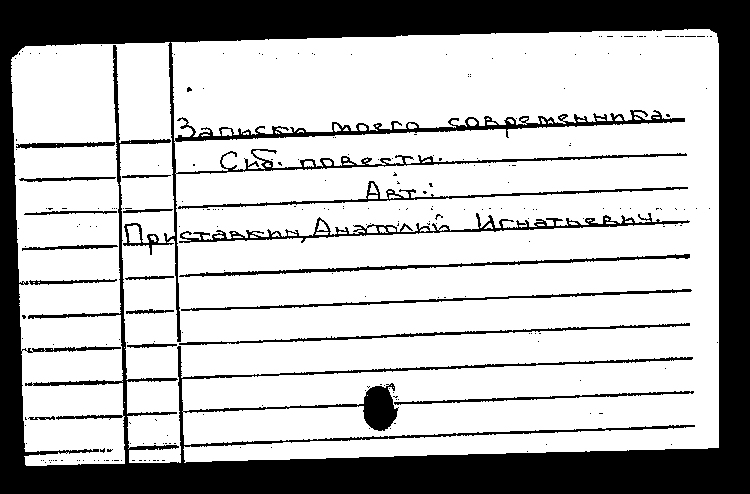 Записки моего современника.
Сиб. повести.
Авт.:
Приставкин, Анатолий Игнатьевич.